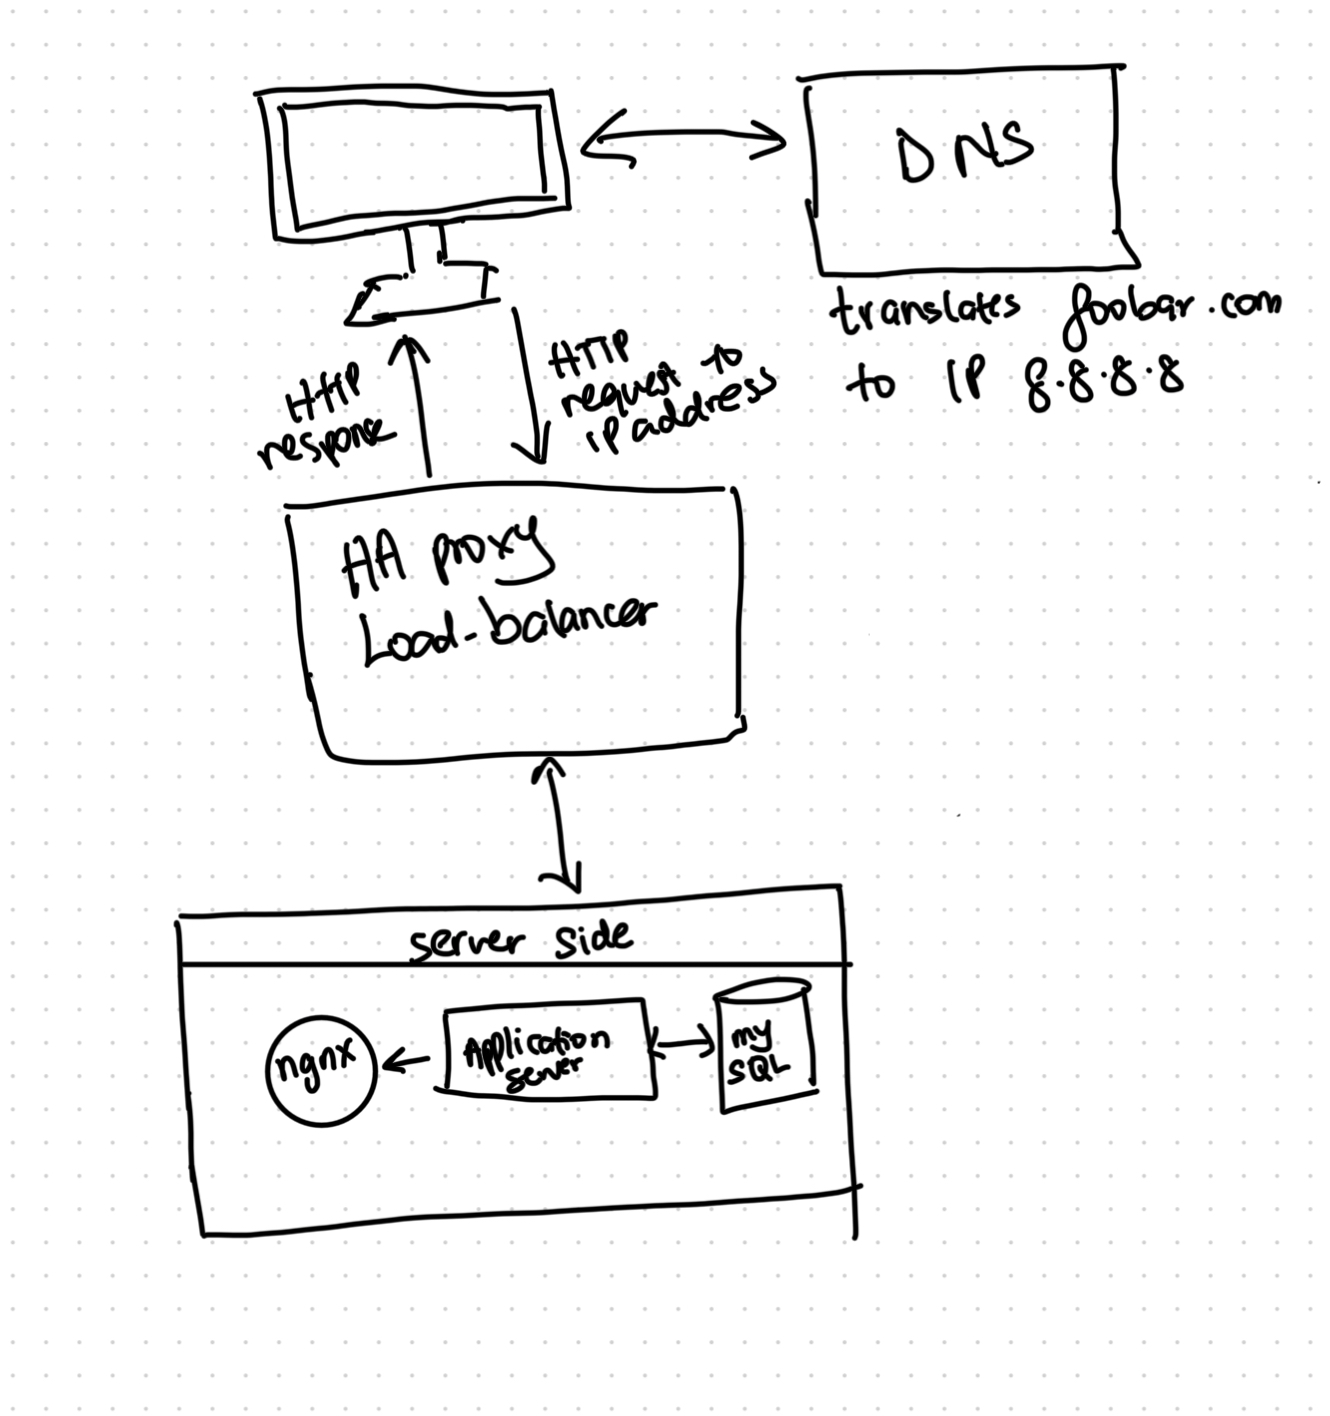 DNS
translates foobar.com
to IP 8.8.8.8
HTTP
response
HTTP
request to
ip address
HA proxy
Load-balancer
server side
ngnx
Application
server
my
SQL